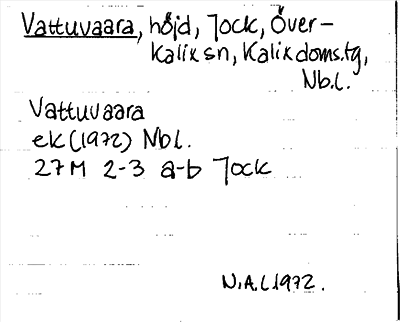 Vattuvaara, höjd, Jock, Över-
Kalix sn, Kalix doms.tg,
Nb.l.
Vattuvaara
ek (1972) Nbl.
27M 2-3 a-b Jock
N.A.L 1972.